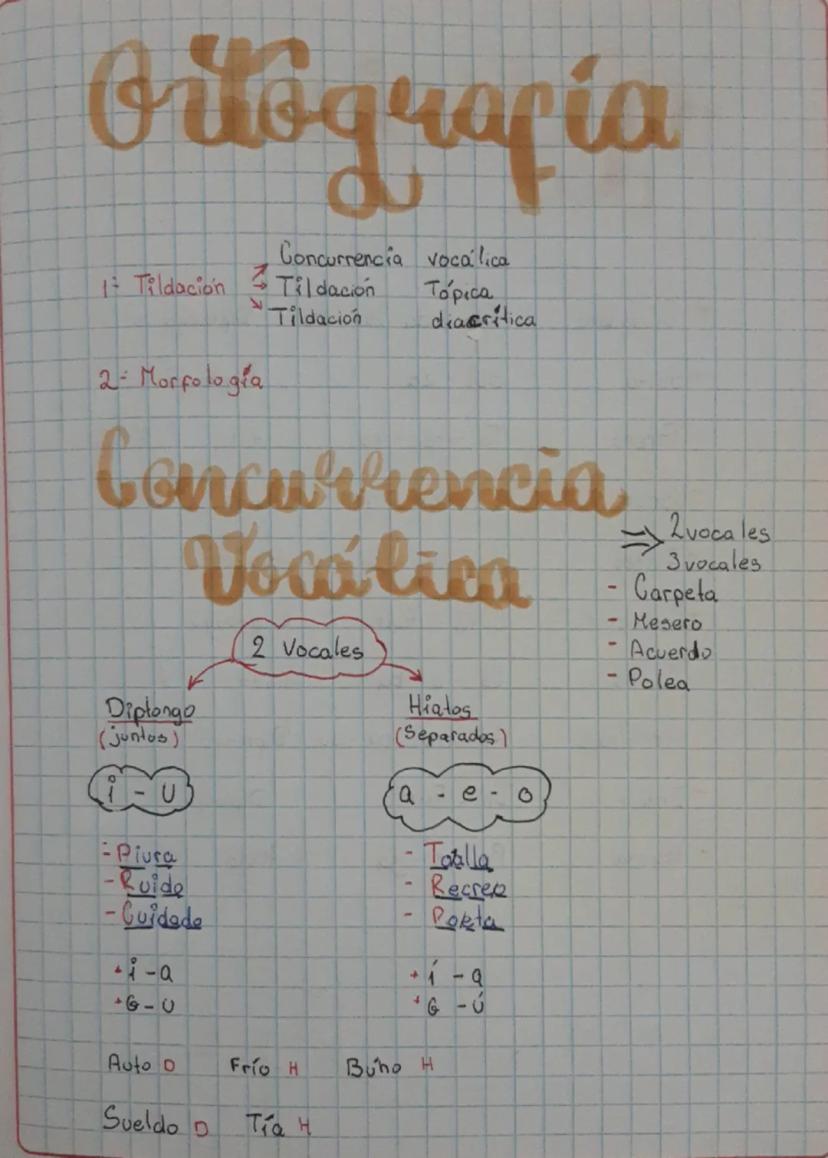 Ortografía
Concurrencia vocálica
1- Tildación → Tildación Tópica
Tildación diacrítica
2- Morfología
Concurrencia
Vocálica
⇒ 2 vocales
3 vocales
- Carpeta
- Mesero
- Acuerdo
- Polea
2 Vocales
Diptongo
(juntos)
i - u
- Piura
- Ruido
- Cuidado
+ i - a
+ G - U
Hiatos
(Separados)
a - e - o
- Toalla
- Recreo
- Poeta
+ í - a
+ G - Ú
Auto D Frío H Búho H
Sueldo D Tía H